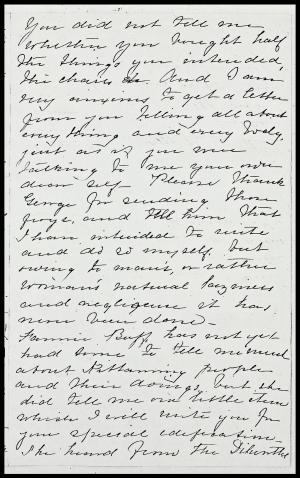 You did not tell me
whether you bought half
the things you intended,
the chairs &c. And I am
very anxious to get a letter
from you telling all about
every thing and every body,
just as if you were
talking to me you own
dear self. Please thank
George for sending those
and tell him that
I have intended to write
and do so myself but
owing to man's, or rather
woman's natural laziness
and negligence it has
never been done—
Fannie Buff has not yet
had time to tell me much
about Kittanning people
and their doings, but she
did tell me one little item
which I will write you for
your special edification—
She heard from the